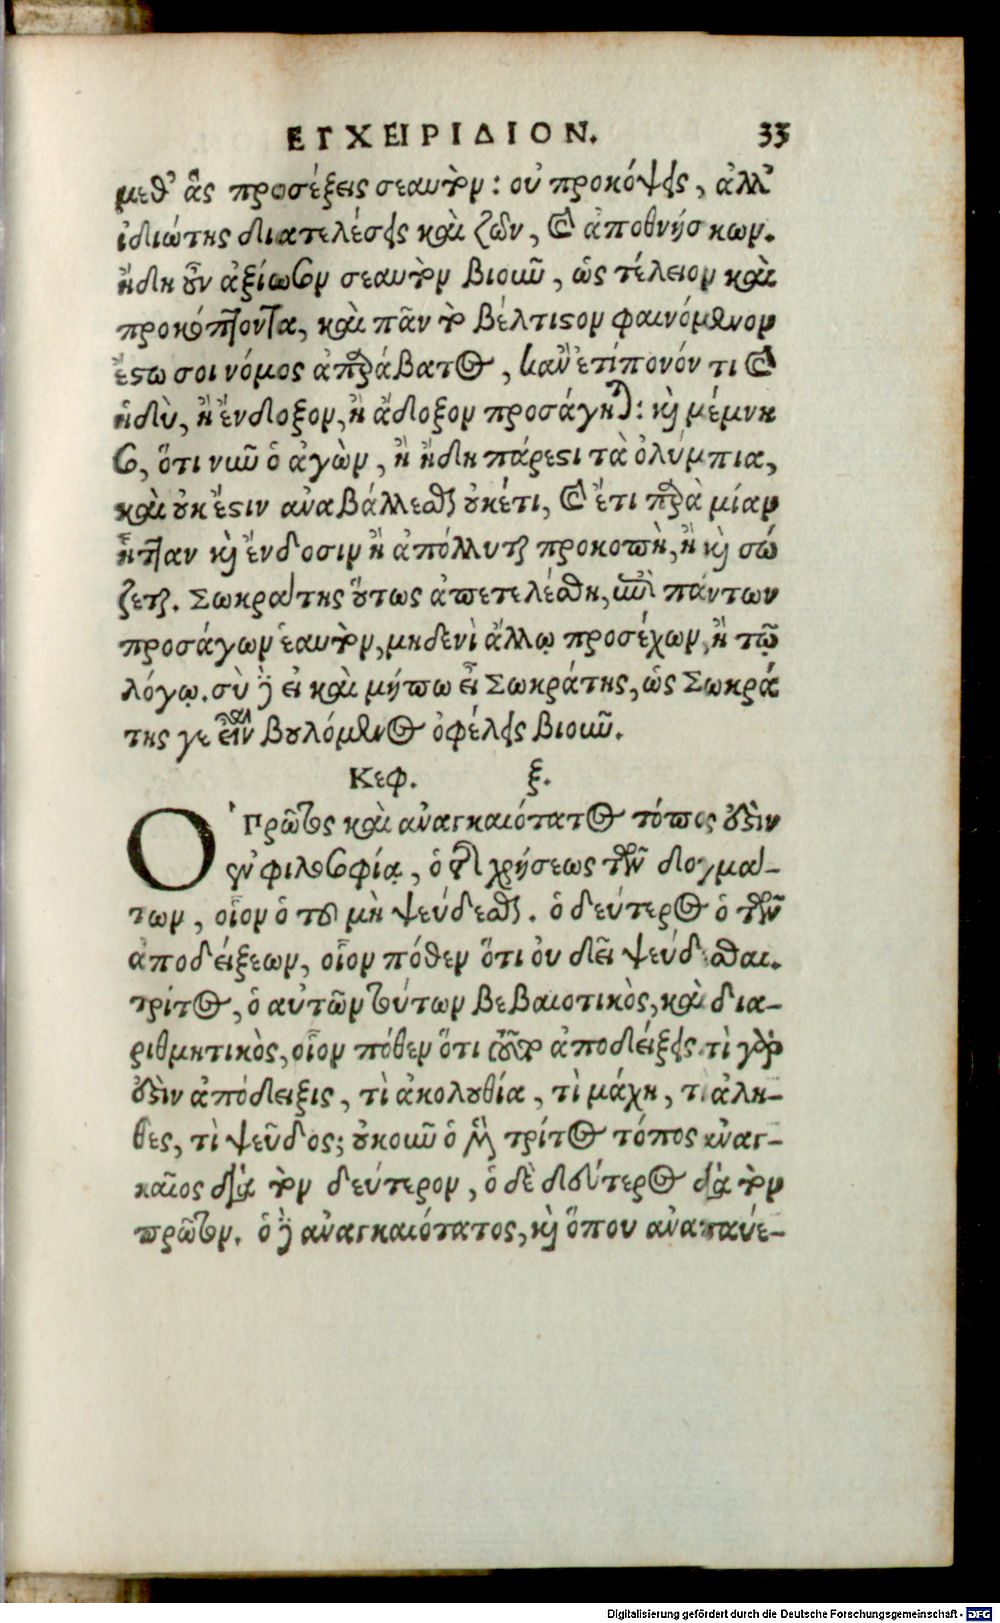 ΕΓΧΕΙΡΙΔΙΟΝ. 33
μεθ' ἃς προσέξεις σεαυτὸν: οὐ προκόψεις, ἀλλ'
ἰδιώτης διατελέσεις καὶ ζῶν, καὶ ἀποθνήσκων.
ἤδη οὖν ἀξίωσον σεαυτὸν βιοῦν, ὡς τέλειον καὶ
προκόπτοντα, καὶ πᾶν τὸ βέλτιστον φαινόμενον
ἔστω σοι νόμος ἀπαράβατος, κἂν ἔτι πονόν τι καὶ
ἡδὺ, ἢ ἔνδοξον, ἢ ἄδοξον προσάγηται: καὶ μέμνη
σο, ὅτι νῦν ὁ ἀγὼν, ἢ ἤδη πάρεστι τὰ ὀλύμπια,
καὶ οὐκ ἔστιν ἀναβάλλεσθαι οὐκέτι, καὶ ἔτι παρὰ μίαν
ἧτταν καὶ ἔνδοσιν ἢ ἀπόλλυται προκοπὴ, ἢ καὶ σώ
ζεται. Σωκράτης οὕτως ἀπετελέσθη, ἐπὶ πάντων
προσάγων ἑαυτὸν, μηδενὶ ἄλλῳ προσέχων, ἢ τῷ
λόγῳ. σὺ δὲ εἰ καὶ μήπω εἶ Σωκράτης, ὡς Σωκρά
της γε εἶναι βουλόμενος ὀφείλεις βιοῦν.
Κεφ. ξ.
Ὁ πρῶτος καὶ ἀναγκαιότατος τόπος οὗτός ἐστιν
ἐν φιλοσοφίᾳ, ὁ τῆς χρήσεως τῶν δογμά-
των, οἷον ὁ τοῦ μὴ ψεύδεσθαι. ὁ δεύτερος ὁ τῶν
ἀποδείξεων, οἷον πόθεν ὅτι οὐ δεῖ ψεύδεσθαι.
τρίτος, ὁ αὐτῶν τούτων βεβαιοτικὸς, καὶ δια-
ριθμητικὸς, οἷον πόθεν ὅτι τοῦτο ἀπόδειξις. τὶ γὰρ
ἐστὶν ἀπόδειξις, τὶ ἀκολουθία, τὶ μάχη, τὶ ἀλη-
θὲς, τὶ ψεῦδος; οὐκοῦν ὁ μὲν τρίτος τόπος ἀναγ-
καῖος διὰ τὸν δεύτερον, ὁ δὲ δεύτερος διὰ τὸν
πρῶτον. ὁ δὲ ἀναγκαιότατος, καὶ ὅπου ἀναπαύε-
Digitalisierung gefördert durch die Deutsche Forschungsgemeinschaft - DFG